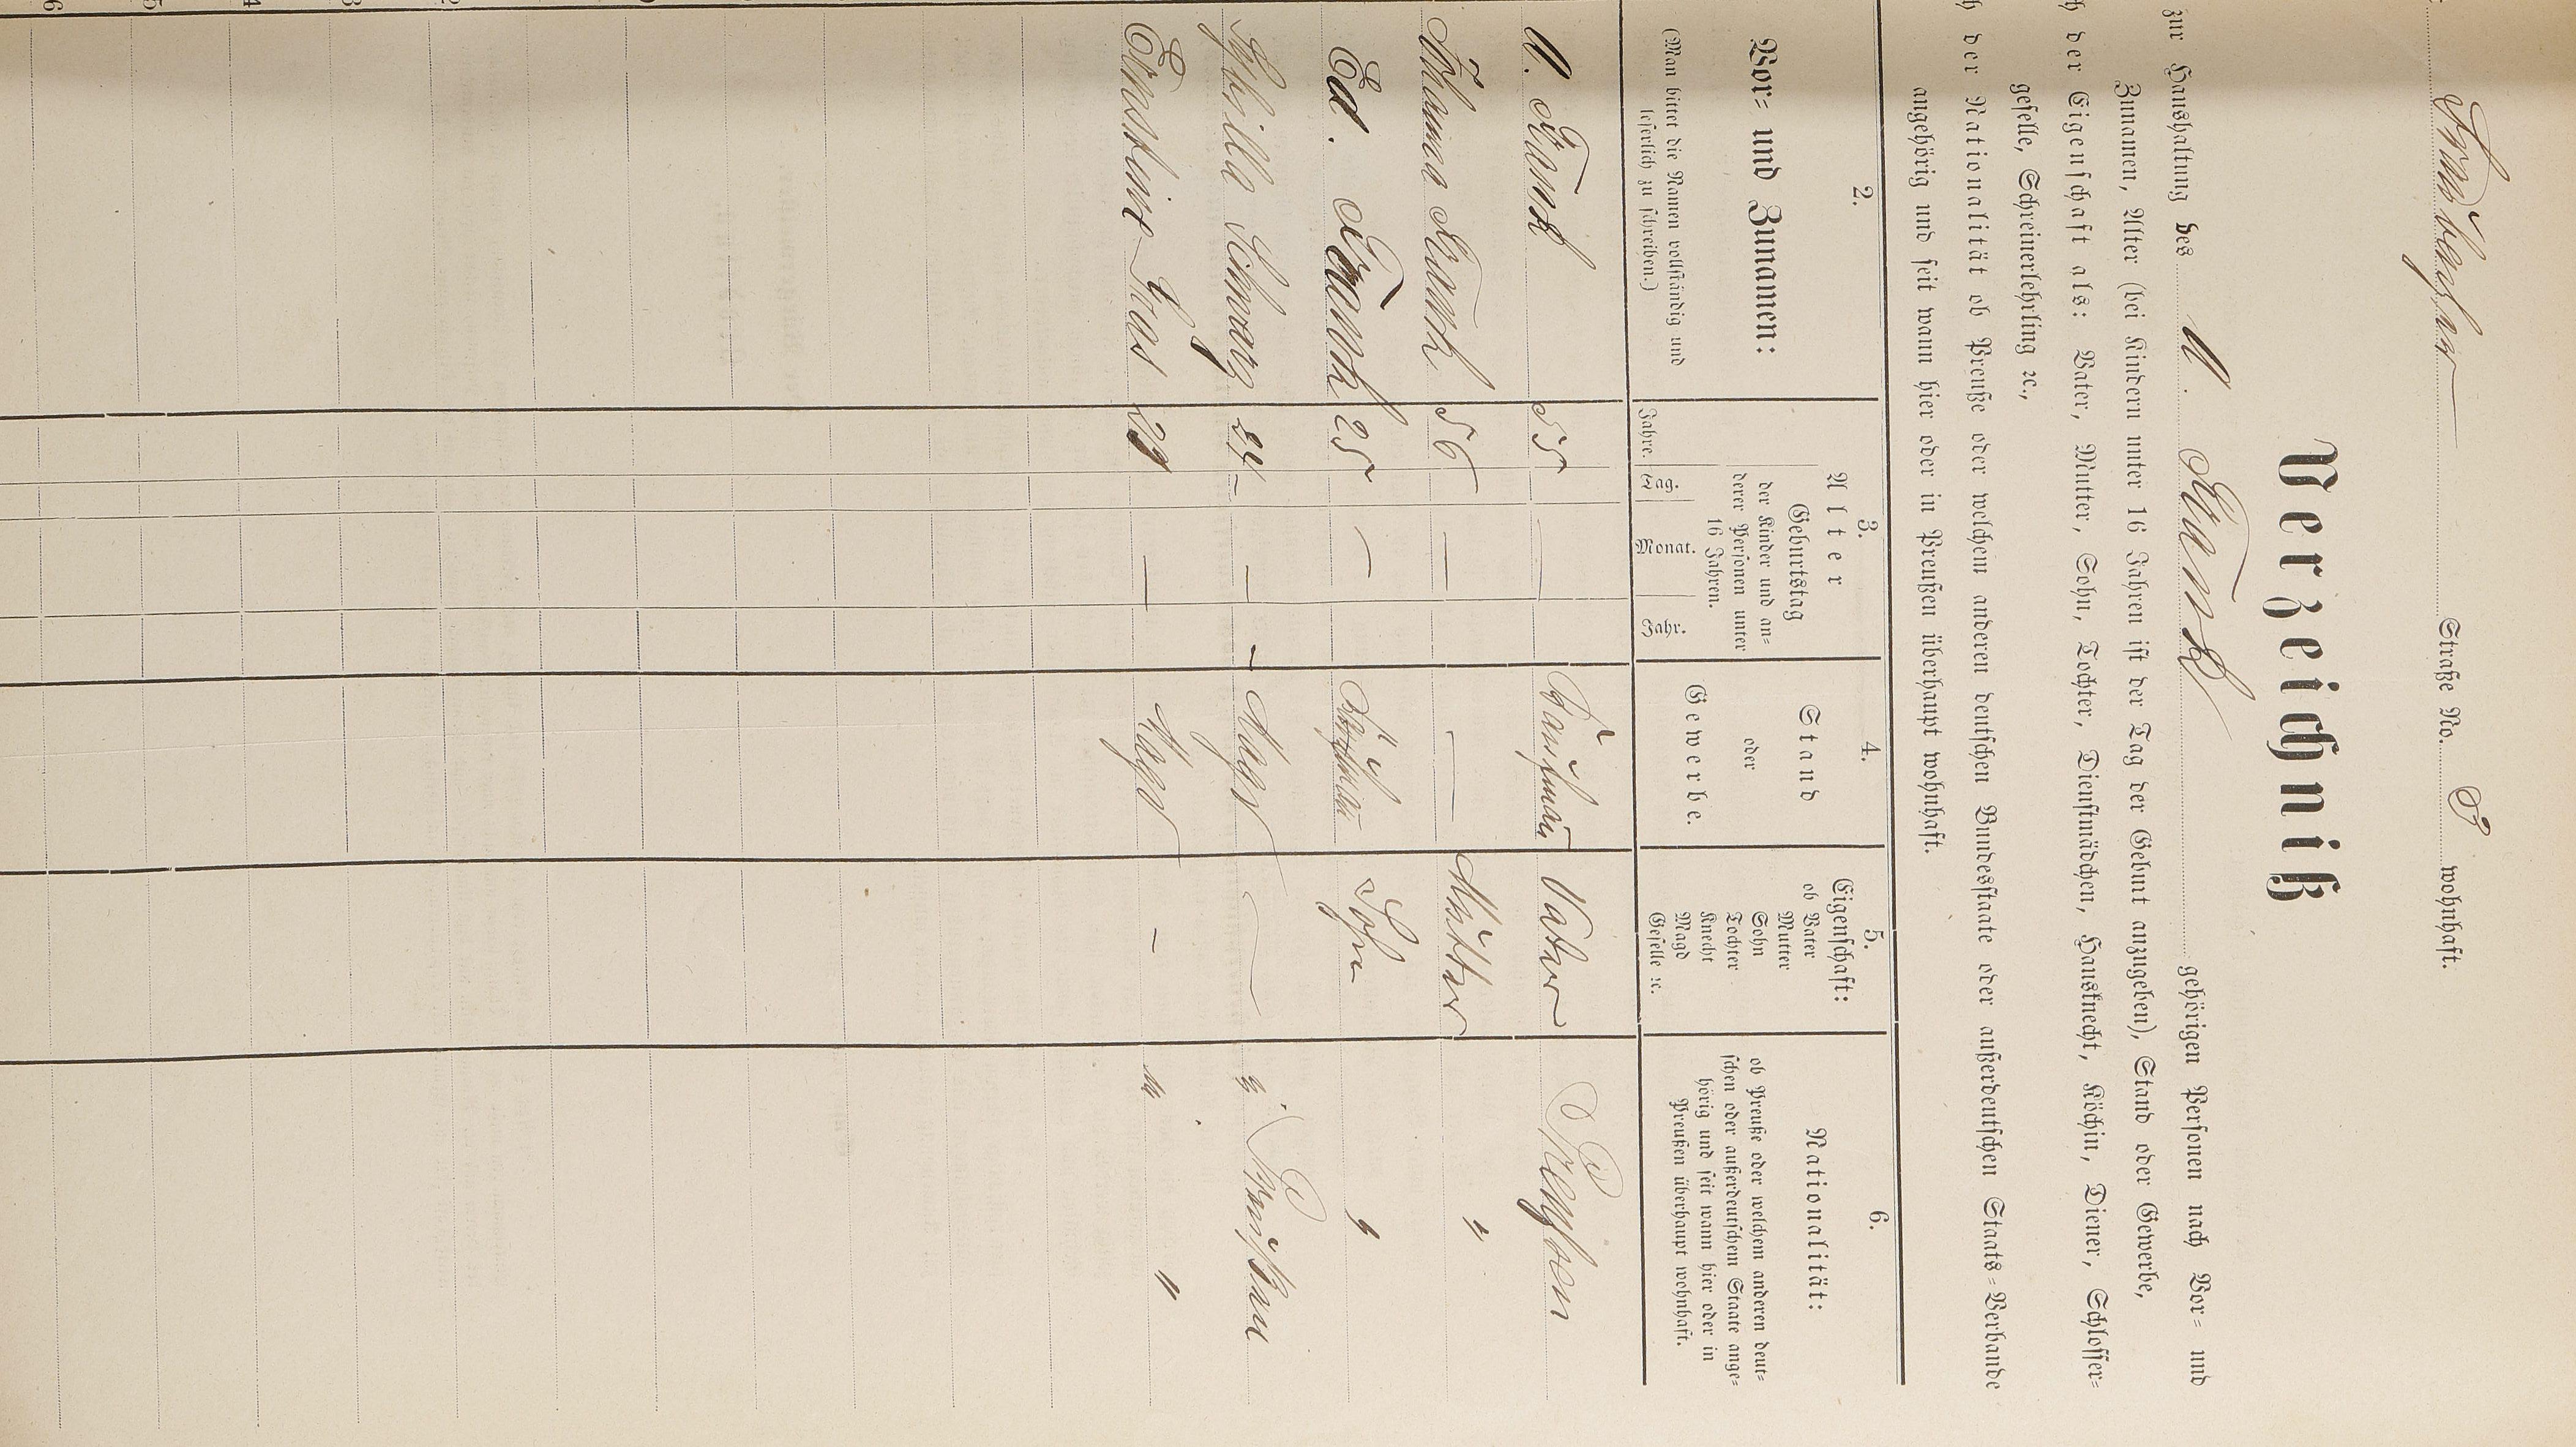 Straße No. 8 wohnhaft.
Verzeichniß
zur Haushaltung des M. Frank gehörigen Personen nach Vor= und
Zunamen, Alter (bei Kindern unter 16 Jahren ist der Tag der Geburt anzugeben), Stand oder Gewerbe,
der Eigenschaft als: Vater, Mutter, Sohn, Tochter, Dienstmädchen, Hausknecht, Köchin, Diener, Schlosser=
geselle, Schreinerlehrling ꝛc.,
der Nationalität ob Preuße oder welchem anderen deutschen Bundesstaate oder außerdeutschen Staats=Verbande
angehörig und seit wann hier oder in Preußen überhaupt wohnhaft.
2. 3. 4. 5. 6.
Vor= und Zunamen:
(Man bittet die Namen vollständig und
leserlich zu schreiben.)
Alter
Geburtstag
der Kinder und an=
derer Personen unter
16 Jahren.
Jahre. Tag. Monat. Jahr.
Stand
oder
Gewerbe.
Eigenschaft:
ob Vater
Mutter
Sohn
Tochter
Knecht
Magd
Geselle ꝛc.
Nationalität:
ob Preuße oder welchem anderen deut=
schen oder außerdeutschen Staate ange=
hörig und seit wann hier oder in
Preußen überhaupt wohnhaft.
M. Frank 55 — Kaufmann Vater Preußen
Johanna Frank 56 — — Mutter "
Ed. Frank 25 — Kaufmann Sohn "
Sybilla Schwarz 24 — — Magd — " Preußen
Ernstine 29 — Magd — " "
2
3
4
5
6